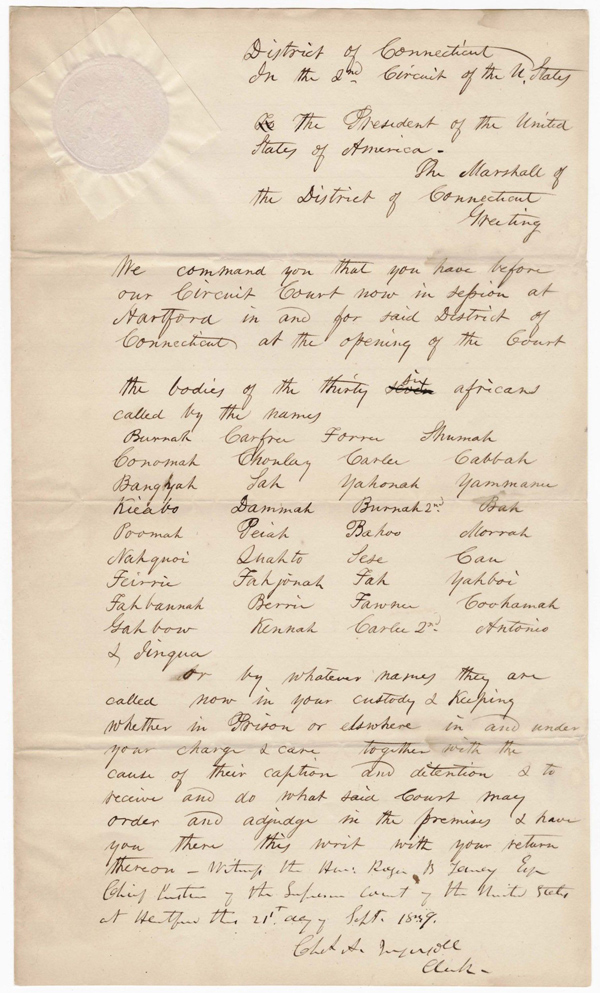 District of Connecticut
In the 2nd Circuit of the U. States
the President of the United
States of America -
The Marshall of
the District of Connecticut
Greeting
We command you that you have before
our Circuit Court now in session at
Hartford in and for said District of
Connecticut at the opening of the Court
the bodies of the thirty seven six africans
called by the names
Burnah Carfree Forru Shumah
Conomah Choolay Carlee Cabbah
Bangyah Sah Yahonah Yammanu
Kieabo Dammah Burnah 2nd Bah
Poomah Peiah Bahoo Morrah
Nahquoi Quahto Sese Cau
Feirrie Fahjonah Fah Yahboi
Fahbannah Berrie Fawnu Cookamah
Gahbow Kennah Carlee 2nd Antonio
& Jingua
or by whatever names they are
called now in your custody & keeping
whether in Prison or elswhere in and under
your charge & care together with the
cause of their caption and detention & to
receive and do what said Court may
order and adjudge in the premises & have
you there this writ with your return
thereon - Witness the Hon: Roger B Taney Esqr
Chief Justice of the Supreme Court of the United States
at Hartford this 21st day of Septr 1839.
Chs A. Ingersoll
Clerk -